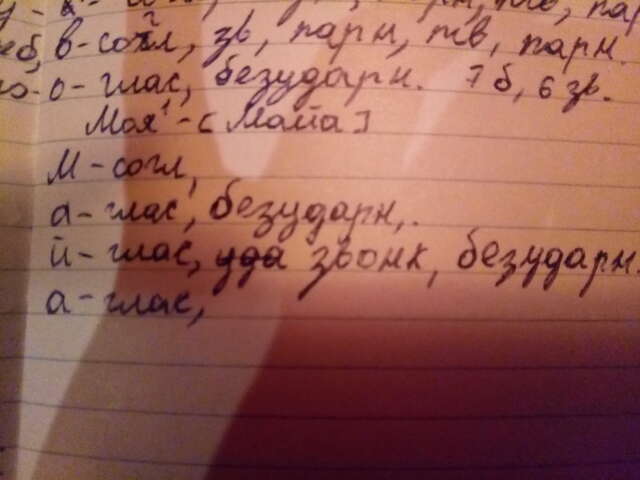 в-согл, зв, парн, тв, парн.
о-глас, безударн. 7 б, 6 зв.
Моя¹-[майа]
М-согл,
а-глас, безударн,.
й-глас, уда звонк, безударн.
а-глас,